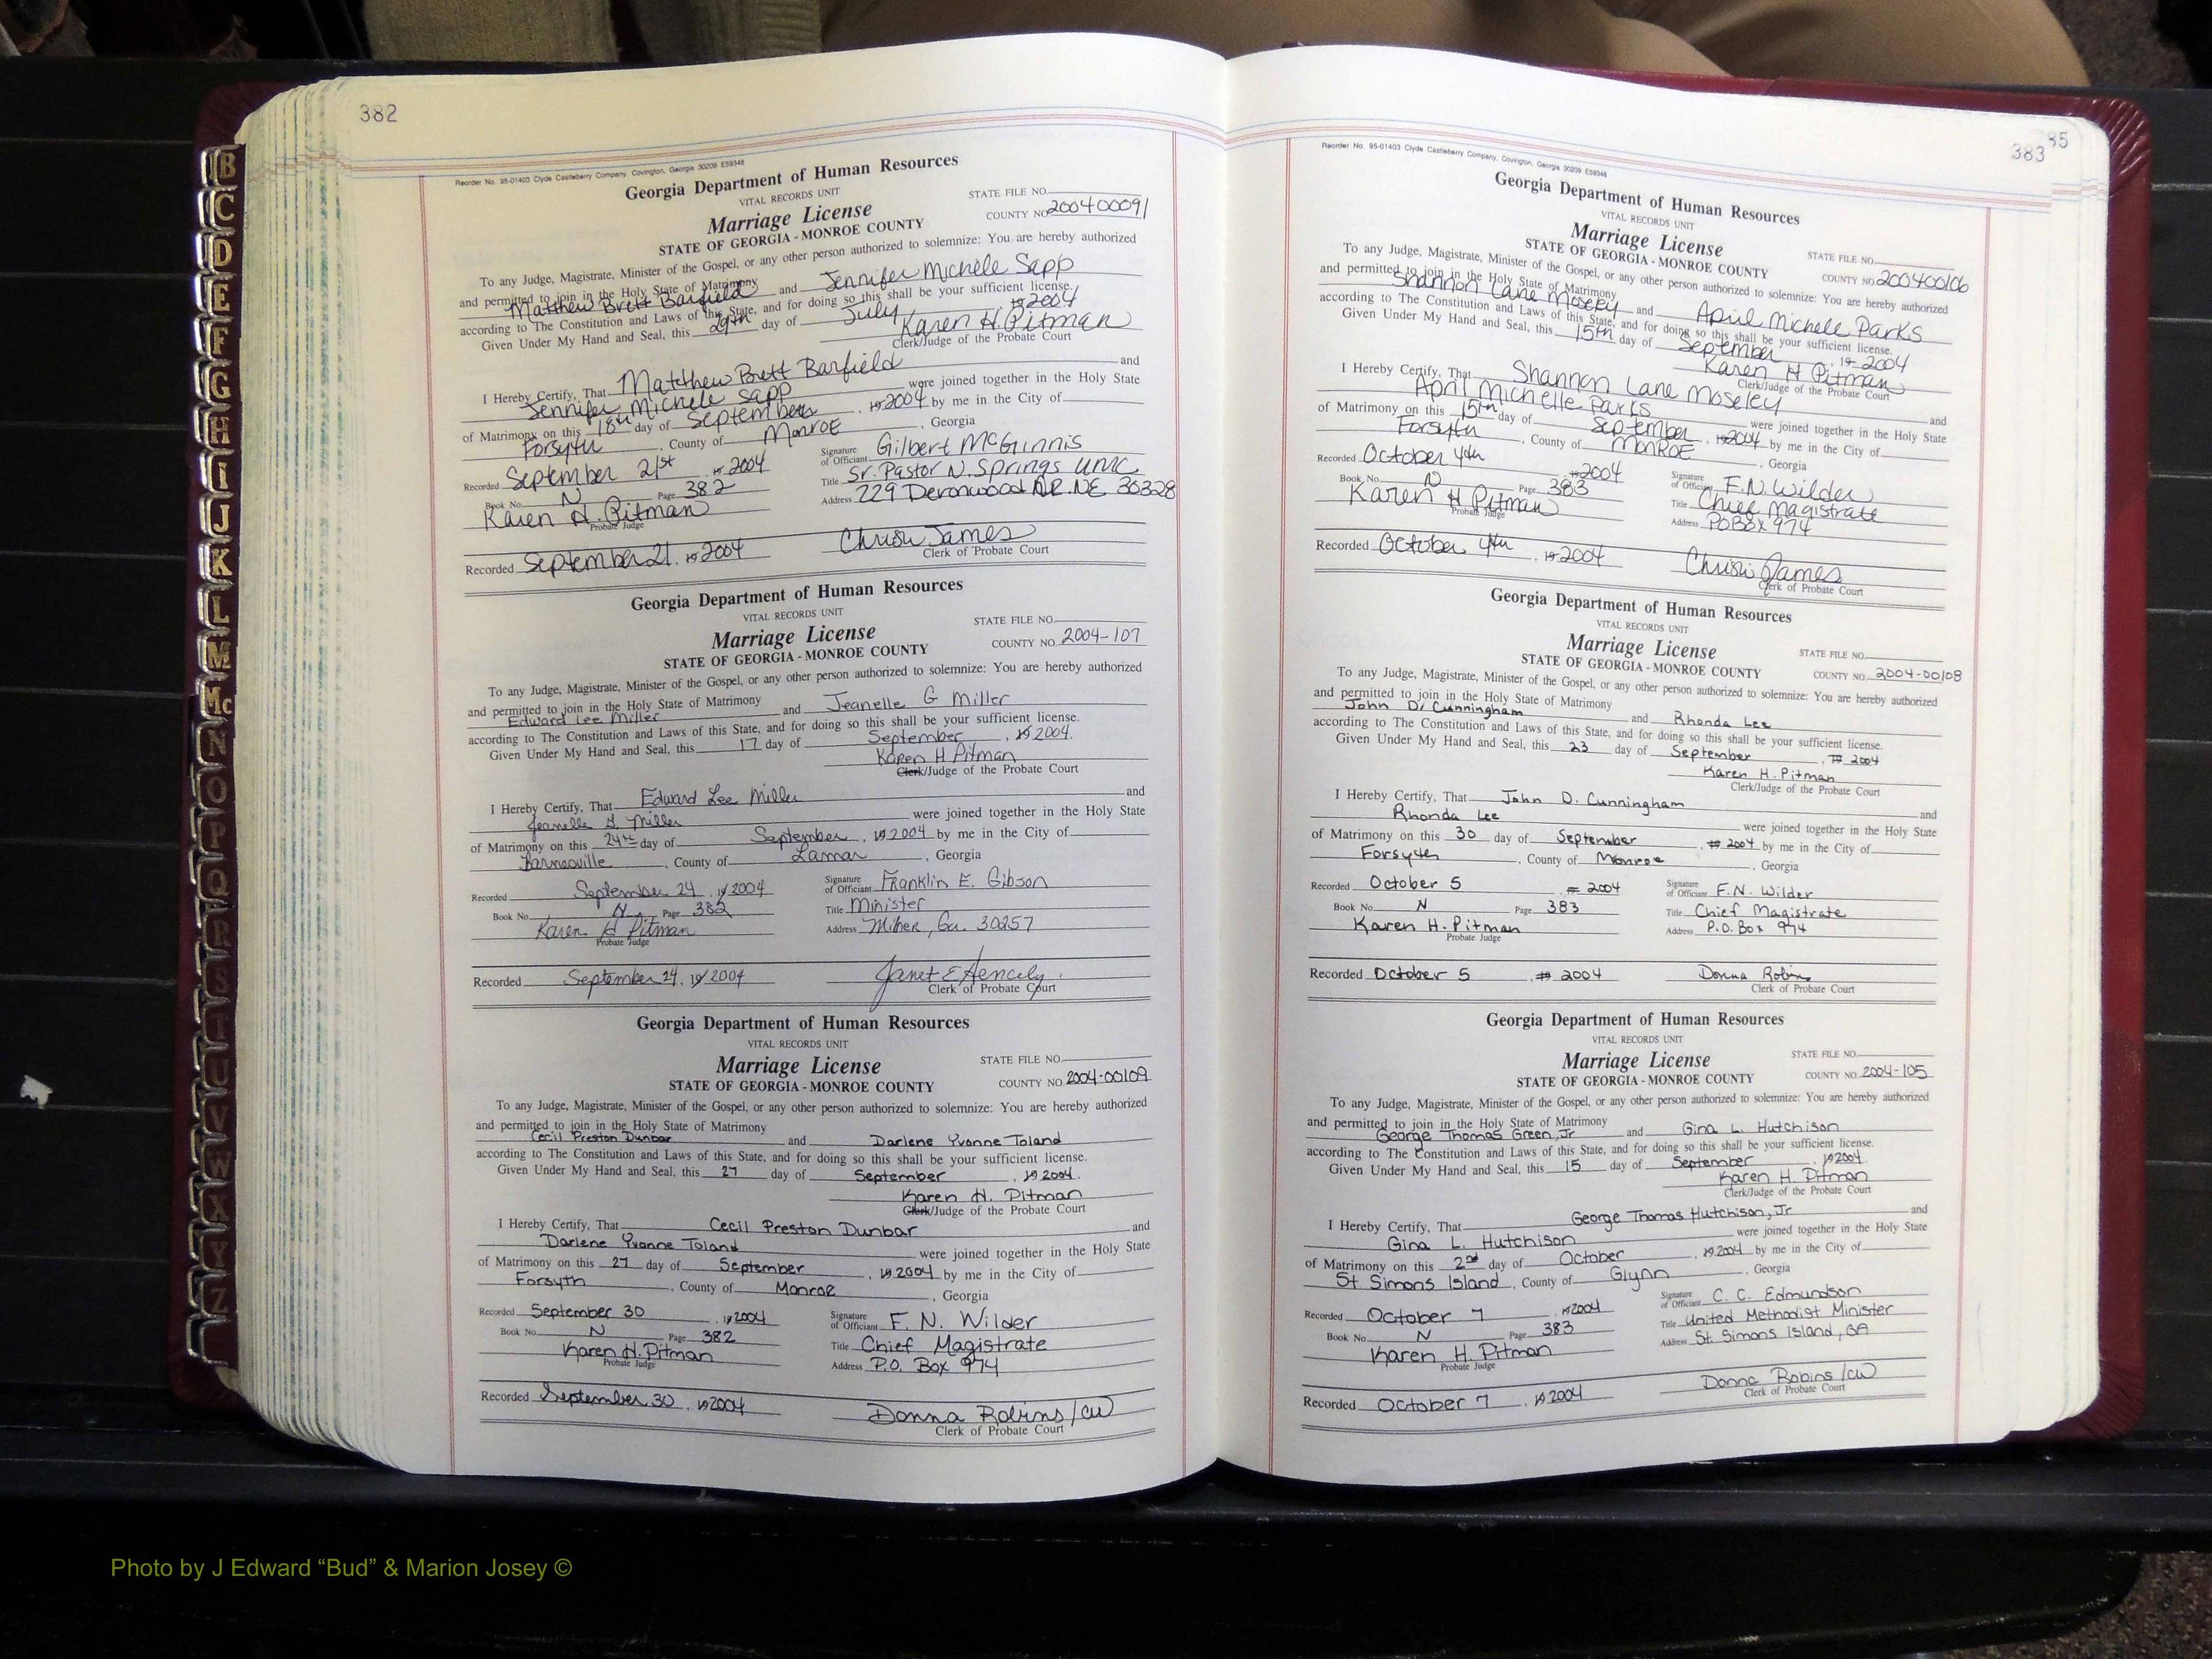 382
Reorder No. 95-01403 Clyde Castleberry Company, Covington, Georgia 30209 E59348
Georgia Department of Human Resources
VITAL RECORDS UNIT
STATE FILE NO.
Marriage License
COUNTY NO 200400091
STATE OF GEORGIA - MONROE COUNTY
To any Judge, Magistrate, Minister of the Gospel, or any other person authorized to solemnize: You are hereby authorized
and permitted to join in the Holy State of Matrimony
Matthew Brett Barfield and Jennifer Michele Sapp
according to The Constitution and Laws of this State, and for doing so this shall be your sufficient license.
Given Under My Hand and Seal, this 29th day of July 19 2004
Karen H. Pitman
Clerk/Judge of the Probate Court
I Hereby Certify, That Matthew Brett Barfield and
Jennifer Michele Sapp were joined together in the Holy State
of Matrimony on this 18th day of September, 19 2004 by me in the City of
Forsyth, County of Monroe, Georgia
Recorded September 21st, 19 2004
Signature of Officiant Gilbert McGinnis
Book No. N Page 382
Title Sr. Pastor N. Springs UMC
Karen H. Pitman
Probate Judge
Address 229 Deronwood DR. NE 30328
Recorded September 21, 19 2004
Christi James
Clerk of Probate Court
Georgia Department of Human Resources
VITAL RECORDS UNIT
STATE FILE NO.
Marriage License
COUNTY NO. 2004-107
STATE OF GEORGIA - MONROE COUNTY
To any Judge, Magistrate, Minister of the Gospel, or any other person authorized to solemnize: You are hereby authorized
and permitted to join in the Holy State of Matrimony
Edward Lee Miller and Jeanelle G Miller
according to The Constitution and Laws of this State, and for doing so this shall be your sufficient license.
Given Under My Hand and Seal, this 17 day of September, 19 2004.
Karen H Pitman
Clerk/Judge of the Probate Court
I Hereby Certify, That Edward Lee Miller and
Jeanelle G. Miller were joined together in the Holy State
of Matrimony on this 24th day of September, 19 2004 by me in the City of
Barnesville, County of Lamar, Georgia
Recorded September 24, 19 2004
Signature of Officiant Franklin E. Gibson
Book No. N Page 382
Title Minister
Karen H Pitman
Probate Judge
Address Milner, Ga. 30257
Recorded September 24, 19 2004
Janet E Hencely
Clerk of Probate Court
Georgia Department of Human Resources
VITAL RECORDS UNIT
STATE FILE NO.
Marriage License
COUNTY NO. 2004-00109
STATE OF GEORGIA - MONROE COUNTY
To any Judge, Magistrate, Minister of the Gospel, or any other person authorized to solemnize: You are hereby authorized
and permitted to join in the Holy State of Matrimony
Cecil Preston Dunbar and Darlene Yvonne Toland
according to The Constitution and Laws of this State, and for doing so this shall be your sufficient license.
Given Under My Hand and Seal, this 27 day of September, 19 2004.
Karen H. Pitman
Clerk/Judge of the Probate Court
I Hereby Certify, That Cecil Preston Dunbar and
Darlene Yvonne Toland were joined together in the Holy State
of Matrimony on this 27 day of September, 19 2004 by me in the City of
Forsyth, County of Monroe, Georgia
Recorded September 30, 19 2004
Signature of Officiant F. N. Wilder
Book No. N Page 382
Title Chief Magistrate
Karen H. Pitman
Probate Judge
Address P.O. Box 974
Recorded September 30, 19 2004
Donna Robins/cw
Clerk of Probate Court
383
85
Reorder No. 95-01403 Clyde Castleberry Company, Covington, Georgia 30209 E59348
Georgia Department of Human Resources
VITAL RECORDS UNIT
Marriage License
STATE FILE NO.
STATE OF GEORGIA - MONROE COUNTY
COUNTY NO 200400106
To any Judge, Magistrate, Minister of the Gospel, or any other person authorized to solemnize: You are hereby authorized
and permitted to join in the Holy State of Matrimony
Shannon Lane Moseley and April Michele Parks
according to The Constitution and Laws of this State, and for doing so this shall be your sufficient license.
Given Under My Hand and Seal, this 15th day of September, 19 2004
Karen H Pitman
Clerk/Judge of the Probate Court
I Hereby Certify, That Shannon Lane Moseley and
April Michelle Parks were joined together in the Holy State
of Matrimony on this 15th day of September, 19 2004 by me in the City of
Forsyth, County of MONROE, Georgia
Recorded October 4th, 19 2004
Signature of Officiant F.N. Wilder
Book No. N Page 383
Title Chief Magistrate
Karen H Pitman
Probate Judge
Address PO Box 974
Recorded October 4th, 19 2004
Christi James
Clerk of Probate Court
Georgia Department of Human Resources
VITAL RECORDS UNIT
Marriage License
STATE FILE NO.
STATE OF GEORGIA - MONROE COUNTY
COUNTY NO. 2004-00108
To any Judge, Magistrate, Minister of the Gospel, or any other person authorized to solemnize: You are hereby authorized
and permitted to join in the Holy State of Matrimony
John D. Cunningham and Rhonda Lee
according to The Constitution and Laws of this State, and for doing so this shall be your sufficient license.
Given Under My Hand and Seal, this 23 day of September, 19 2004
Karen H. Pitman
Clerk/Judge of the Probate Court
I Hereby Certify, That John D. Cunningham and
Rhonda Lee were joined together in the Holy State
of Matrimony on this 30 day of September, 19 2004 by me in the City of
Forsyth, County of Monroe, Georgia
Recorded October 5, 19 2004
Signature of Officiant F.N. Wilder
Book No. N Page 383
Title Chief Magistrate
Karen H. Pitman
Probate Judge
Address P.O. Box 974
Recorded October 5, 19 2004
Donna Robins
Clerk of Probate Court
Georgia Department of Human Resources
VITAL RECORDS UNIT
STATE FILE NO.
Marriage License
COUNTY NO. 2004-105
STATE OF GEORGIA - MONROE COUNTY
To any Judge, Magistrate, Minister of the Gospel, or any other person authorized to solemnize: You are hereby authorized
and permitted to join in the Holy State of Matrimony
George Thomas Green, Jr and Gina L. Hutchison
according to The Constitution and Laws of this State, and for doing so this shall be your sufficient license.
Given Under My Hand and Seal, this 15 day of September, 19 2004.
Karen H Pitman
Clerk/Judge of the Probate Court
I Hereby Certify, That George Thomas Hutchison, Jr and
Gina L. Hutchison were joined together in the Holy State
of Matrimony on this 2nd day of October, 19 2004 by me in the City of
St. Simons Island, County of Glynn, Georgia
Recorded October 7, 19 2004
Signature of Officiant C. C. Edmundson
Book No. N Page 383
Title United Methodist Minister
Karen H. Pitman
Probate Judge
Address St. Simons Island, GA
Recorded October 7, 19 2004
Donna Robins/cw
Clerk of Probate Court
B
C
D
E
F
G
H
I
J
K
L
M
Mc
N
O
P
Q
R
S
T
U
V
W
X
Y
Z
Photo by J Edward “Bud” & Marion Josey ©